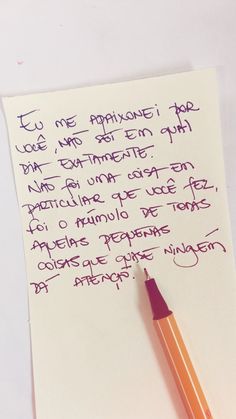 Eu me apaixonei por
você, não sei em qual
dia exatamente.
Não foi uma coisa em
particular que você fez,
foi o acúmulo de todas
aquelas pequenas
coisas que quase ninguém
dá atenção.